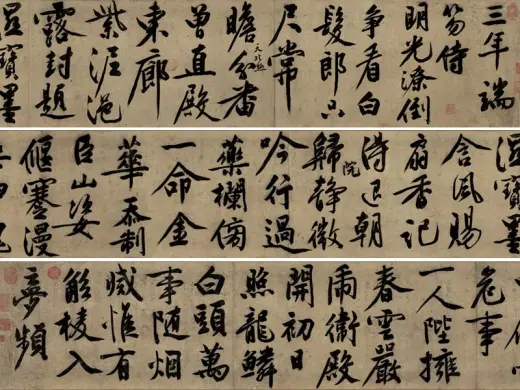 三年端
笏侍
明光潦倒
争看白
髮郎只
尺常
瞻天北極分番
曾直殿
東廊
紫泥浥
露封題
濕寶墨
濕寶墨
含風賜
扇香記
得退朝
歸静院微
吟行過
藥欄傍
一命金
華忝制
臣山姿
偃蹇漫
危事
一人陛擁
春雲嚴
虎衛殿
開初日
照龍鱗
白頭萬
事随烟
滅惟有
觚棱入
夢頻